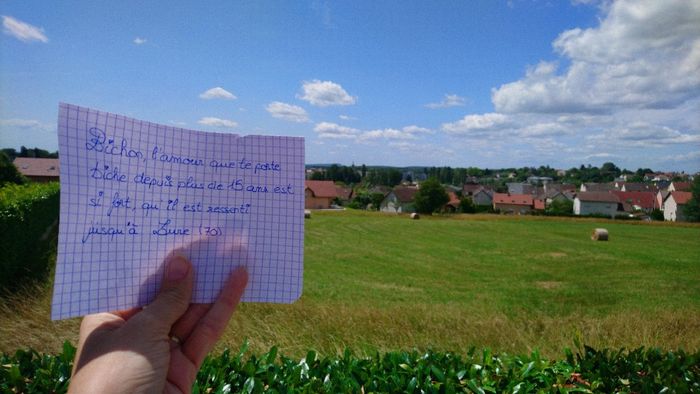 Bichon, l'amour que te porte
biche depuis plus de 15 ans est
si fort, qu'il est ressenti
jusqu'à Lure (70)